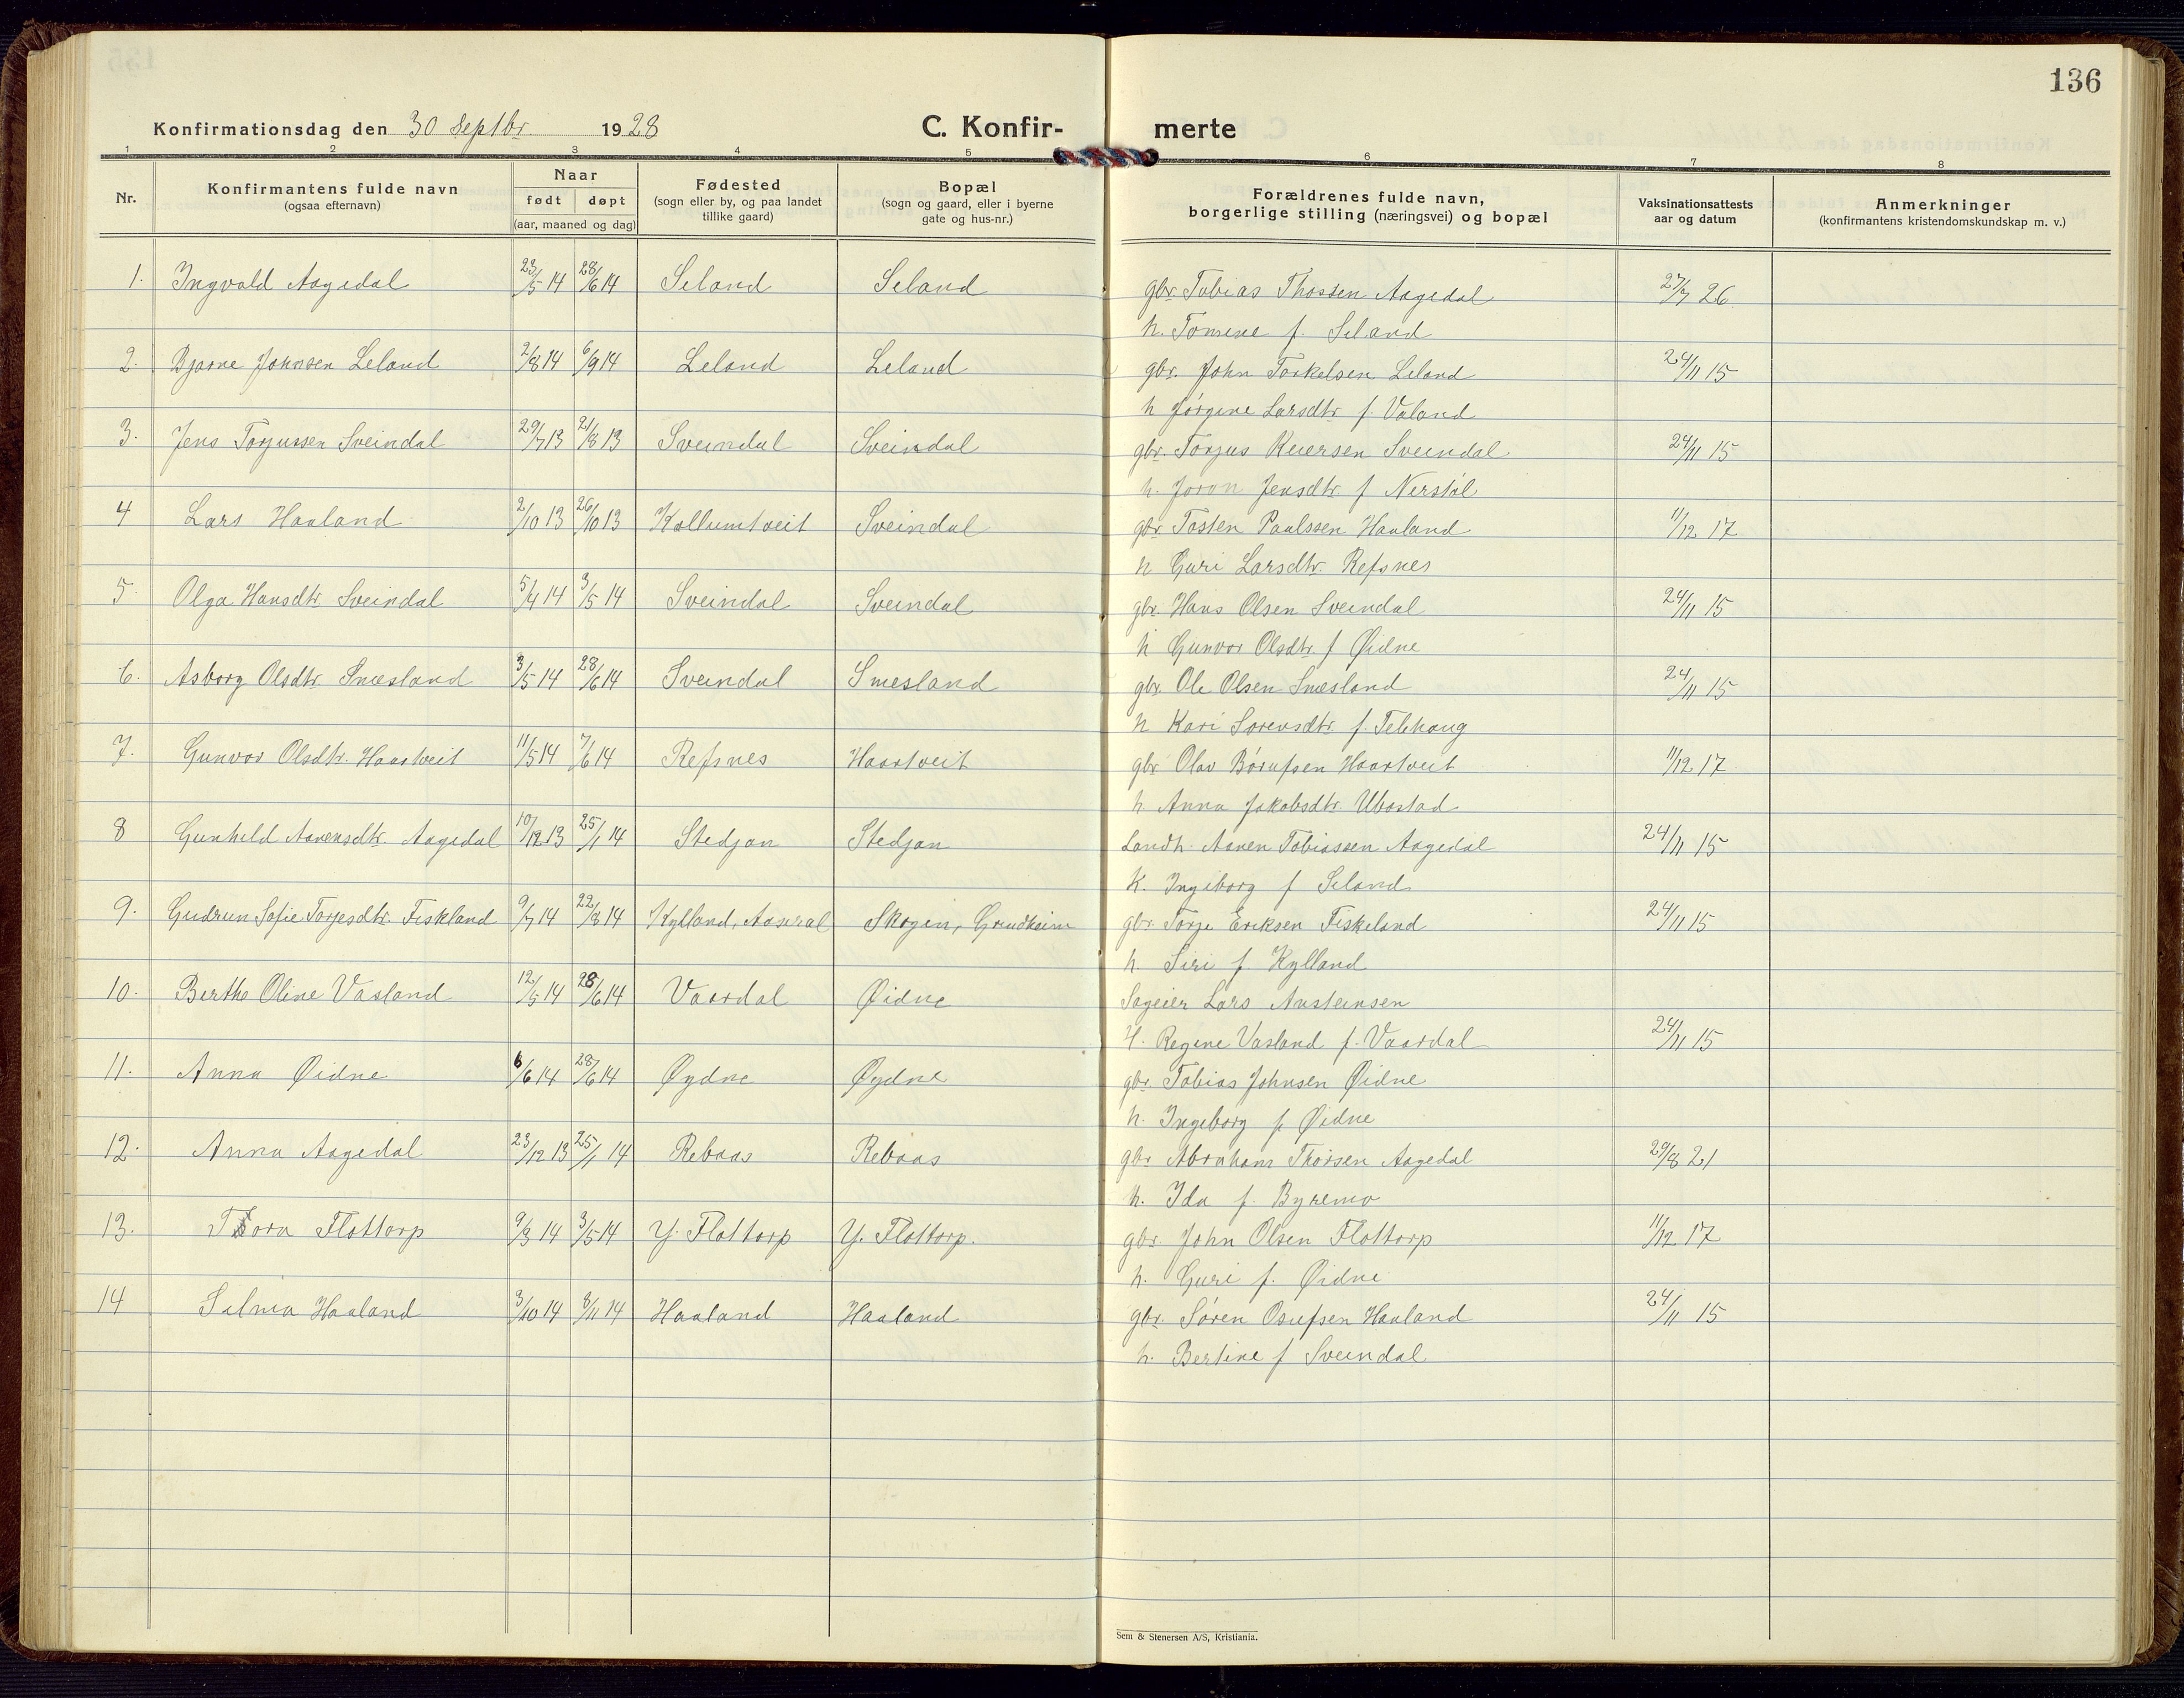 136
Konfirmationsdag den 30 Septbr. 1928
C. Konfir-
merte
1 2 3 4 5 6 7 8
Nr.
Konfirmantens fulde navn
(ogsaa efternavn)
Naar
født døpt
(aar, maaned og dag)
Fødested
(sogn eller by, og paa landet
tillike gaard)
Bopæl
(sogn og gaard, eller i byerne
gate og hus-nr.)
Forældrenes fulde navn,
borgerlige stilling (næringsvei) og bopæl
Vaksinationsattests
aar og datum
Anmerkninger
(konfirmantens kristendomskundskap m. v.)
1. Ingvald Aagedal 23/5 14 28/6 14 Seland Seland gbr. Tobias Thorsen Aagedal 27/7 26
h. Tomine f. Seland
2. Bjarne Johnsen Leland 2/8 14 6/9 14 Leland Leland gbr. John Torkelsen Leland 24/11 15
h Jørgine Larsdtr f. Valand
3. Jens Torjussen Sveindal 29/7 13 21/8 13 Sveindal Sveindal gbr. Torjus Reiersen Sveindal 24/11 15
h. Joron Jensdtr f Nerstøl
4 Lars Haaland 2/10 13 26/10 13 Kollumtveit Sveindal gbr. Tosten Paulssen Haaland 11/12 17
h Guri Larsdtr. Refsnes
5. Olga Hansdtr. Sveindal 5/4 14 3/5 14 Sveindal Sveindal gbr. Hans Olsen Sveindal 24/11 15
h Gunvor Olsdtr. f Øidne
6. Asborg Olsdtr Smesland 3/5 14 28/6 14 Sveindal Smesland gbr. Ole Olsen Smesland 24/11 15
h Kari Sorensdtr. f. Telhaug
7. Gunvor Olsdtr. Haartveit 11/5 14 7/6 14 Refsnes Haartveit gbr Olav Bórufsen Haartveit 11/12 17
h. Anna Jakobsdtr Ubostad
8 Gunhild Aavensdtr. Aagedal 10/12 13 25/1 14 Stedjan Stedjan Landh. Aanen Tobiassen Aagedal 24/11 15
K. Ingiborg f Seland
9. Gudrun Sofie Torjesdtr. Fiskland 9/7 14 22/8 14 Kylland, Aaseral Skogen, Grindheim gbr. Torje Eriksen Fiskeland 24/11 15
h. Siri f. Kylland
10. Berthe Oline Vasland 12/5 14 28/6 14 Vaardal Øidne Sageier Lars Austeinsen
H. Regine Vasland f. Vaardal 24/11 15
11. Anna Øidne 6/6 14 28/6 14 Øydne Øydne gbr. Tobias Johnsen Øidne
h. Ingeborg f. Øidne
12. Anna Aagedal 23/12 13 25/1 14 Rebaas Rebaas gbr Abraham Thorsen Aagedal 29/8 21
h. Ida f. Byremo
13. Tora Flottorp 9/3 14 3/5 14 Y. Flottorp Y. Flottorp. gbr. John Olsen Flottorp 11/12 17
h. Guri f. Øidne
14 Salma Haaland 3/10 14 8/11 14 Haaland Haaland gbr. Søren Osufsen Haaland 24/11 15
h. Bertine f Sveindal
Sem & Stenersen A/S, Kristiania.